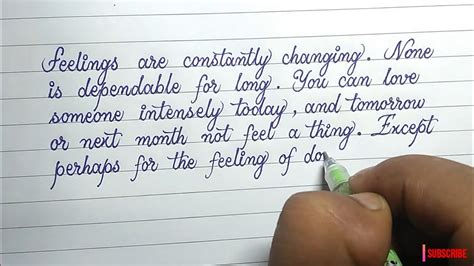 Feelings are constantly changing. None
is dependable for long. You can love
someone intensely today, and tomorrow
or next month not feel a thing. Except
perhaps for the feeling of do
SUBSCRIBE